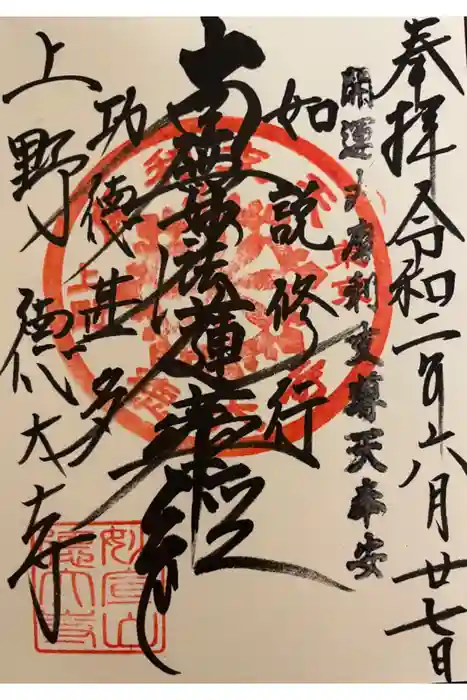 奉拝 令和二年八月廿七日
開運大摩利支尊天奉安
如説修行
南無妙法蓮華経
功徳甚多
上野 徳大寺
妙宣山
徳大寺